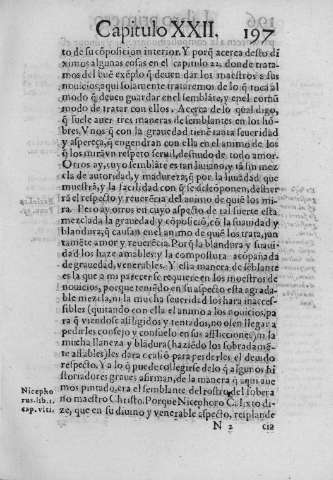 Capitulo XXII. 197
to de su cōposicion interior. Y porq̃ acerca desto di
ximos algunas cosas en el capitulo 22, donde trata-
mos del buē exēplo q̃ deuen dar los maestros a sus
nouicios, aqui solamente trataremos de lo q̃ toca al
modo q̃ deuen guardar en el semblāte, y en el comū
modo de tratar con ellos. Acerca de lo qual digo,
q̃ suele auer tres maneras de semblantes en los hō-
bres. Vnos q̃ con la grauedad tienē tanta seueridad
y aspereça, q̃ engendran con ella en el animo de los
q̃ los mirā vn respeto seruil, desnudo de todo amor.
Otros ay, cuyo semblāte es tan liuiano, y tā sin mez
cla de autoridad, y madureza, q̃ por la liuiandad que
muestrā, y la facilidad con q̃ se descōponen, destier
rā el respecto y reuerēcia del animo de quiē los mi-
ra. Pero ay otros en cuyo aspecto de tal suerte esta
mezclada la grauedad y cōposiciō, cō la suauidad y
blandura, q̃ causan en el animo de quiē los trata, jun
tamēte amor y reuerēcia. Porq̃ la blandura y suaui
dad los haze amables: y la compostura acōpañada
de grauedad, venerables. Y esta manera de sēblante
es la que a mi parecer se requiere en los maestros de
nouicios, porque teniēdo en su aspecto esta agrada-
ble mezcla, ni la mucha seueridad los hara inacces-
sibles (quitando con ella el animo a los nouicios, pa
ra q̃ viendose afligidos y tentados, no osen llegar a
pedirles consejo y consuelo en sus afflicciones) ni la
mucha llaneza y blādura (haziēdo los sobradamē-
te affables) les dara ocasiō para perderles el deuido
respecto. Y a lo q̃ puede collegirse de lo q̃ algunos hi
storiadores graues afirman, de la manera q̃ aqui aue
mos pintado, era el semblante del rostro del sobera
no maestro Christo. Porque Nicephoro C. lixto di-
ze, que en su diuino y venerable aspecto, resplande
Nicepho
rus. lib. 1.
cap. viti.
N 2 cia